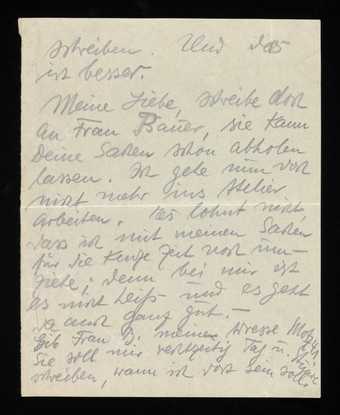 schreiben. Und das
ist besser.
Meine Liebe, schreibe doch
an Frau Bauer, sie kann
Deine Sachen schon abholen
lassen. Ich gehe nun doch
nicht mehr ins Atelier
arbeiten. Es lohnt nicht,
dass ich mit meinen Sachen
für die kurze Zeit noch um-
ziehe; denn bei mir ist
es nicht heiß und es geht
da auch ganz gut.–
Gib Frau B. meine Adresse
Sie soll mir rechtzeitig Tag u.
schreiben, wann ich dort sein soll.